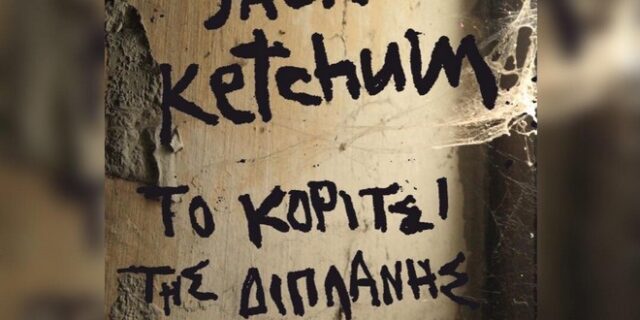 JACK
Ketchum
ΤΟ ΚΟΡΙΤΣΙ
ΤΗΣ ΔΙΠΛΑΝΗΣ